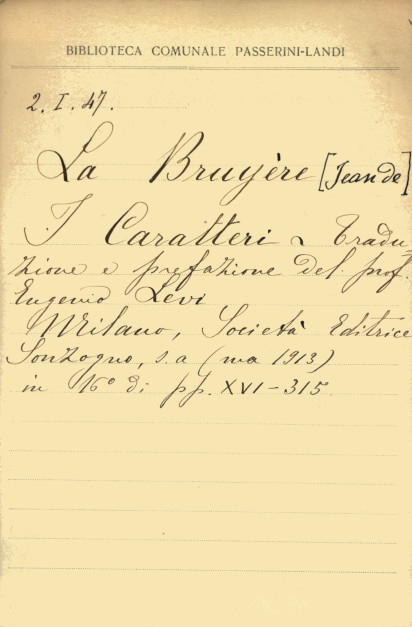 BIBLIOTECA COMUNALE PASSERINI-LANDI
2. I. 47.
La Bruyère [Jean de]
I Caratteri ~ Tradu-
zione e prefazione del prof.
Eugenio Levi
Milano, Società Editrice
Sonzogno, s. a (ma 1913)
in 16° di pp. XVI-315